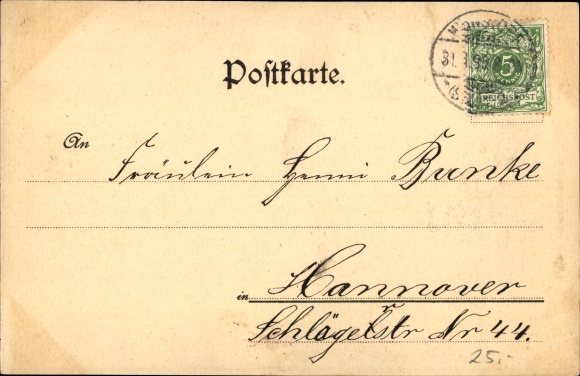 Postkarte.
31.
5
REICHSPOST
An
Fräulein Henni Bunke
in Hannover
Schlägerstr Nr 44.
25.-